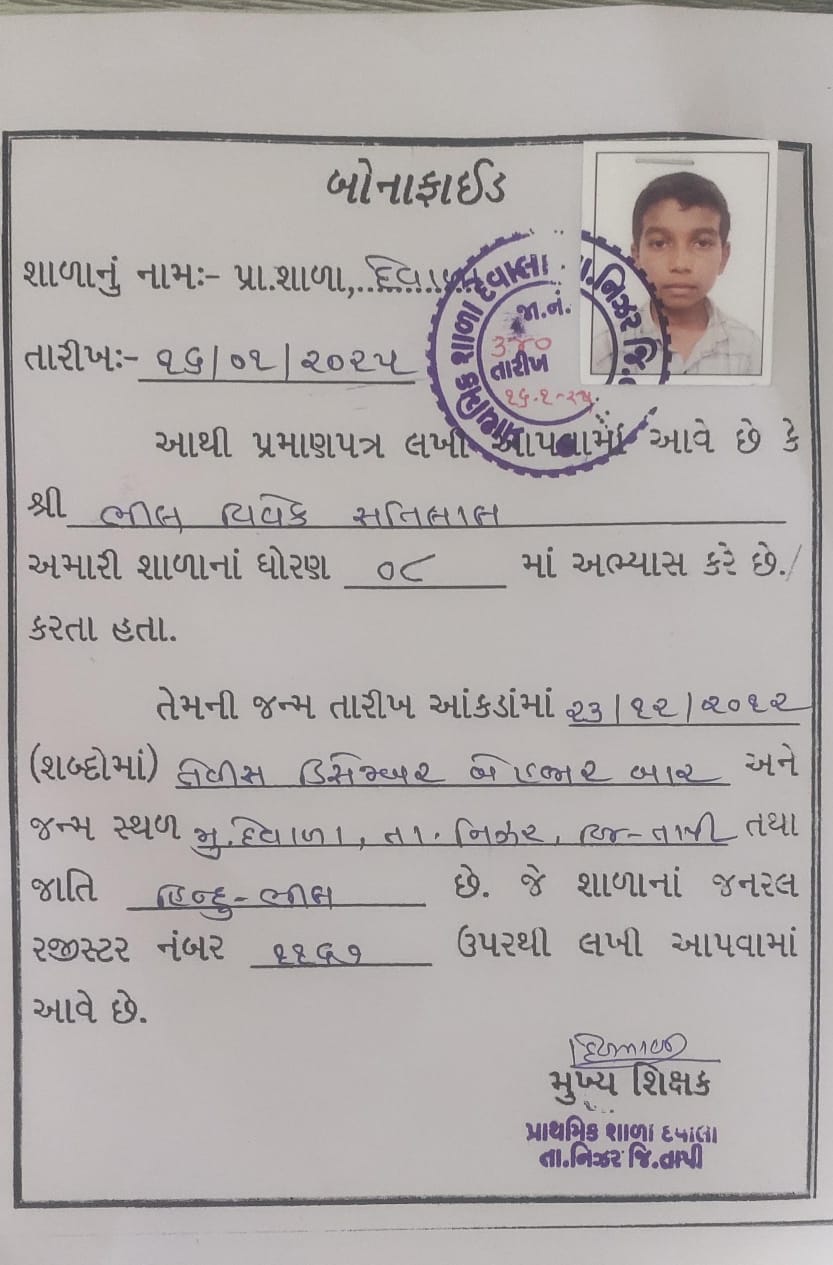 બોનાફાઈડ
શાળાનું નામઃ- પ્રા.શાળા, દેવાળા
તારીખઃ- ૧૬/૦૧/૨૦૨૫
પ્રાથમિક શાળા દેવાલા તા.નિઝર જિ.
જા.નં.
૩૪૦
તારીખ
૧૬.૧-૨૫.
આથી પ્રમાણપત્ર લખી આપવામાં આવે છે કે
શ્રી ભીલ વિવેક સતિલાલ
અમારી શાળાનાં ધોરણ ૦૮ માં અભ્યાસ કરે છે./
કરતા હતા.
તેમની જન્મ તારીખ આંકડાંમાં ૨૩/૧૨/૨૦૧૨
(શબ્દોમાં) ત્રેવીસ ડિસેમ્બર બે હજાર બાર અને
જન્મ સ્થળ મુ.દેવાળા, તા. નિઝર, જિ-તાપી તથા
જાતિ હિન્દુ-ભીલ છે. જે શાળાનાં જનરલ
રજીસ્ટર નંબર ૧૧૬૧ ઉપરથી લખી આપવામાં
આવે છે.
મુખ્ય શિક્ષક
પ્રાથમિક શાળા દેવાલા
તા.નિઝર જિ.તાપી